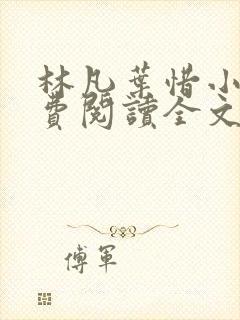 林凡葉惜小
費閱讀全文
傅軍